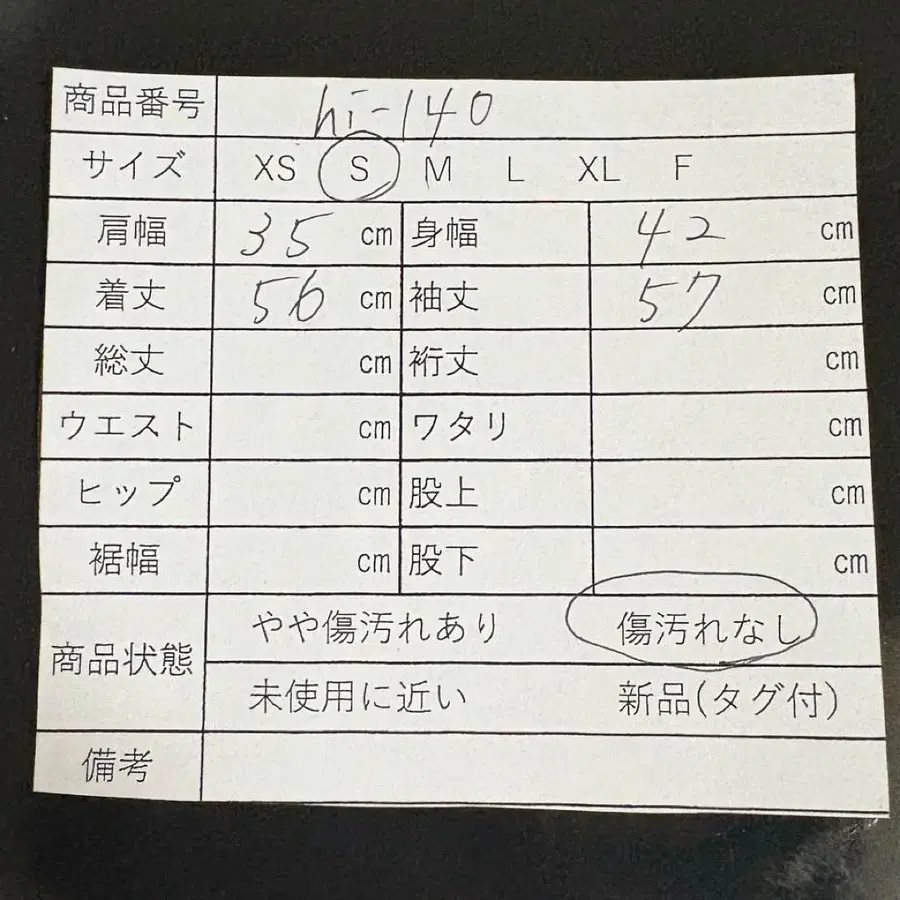 商品番号 hi-140
サイズ XS S M L XL F
肩幅 35 cm 身幅 42 cm
着丈 56 cm 袖丈 57 cm
総丈 cm 裄丈 cm
ウエスト cm ワタリ cm
ヒップ cm 股上 cm
裾幅 cm 股下 cm
商品状態 やや傷汚れあり 傷汚れなし
未使用に近い 新品(タグ付)
備考